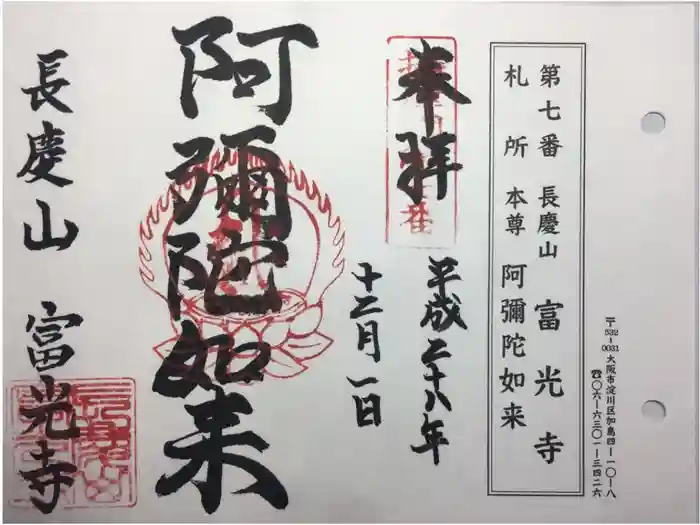 第七番 長慶山 富光寺
札所 本尊 阿彌陀如来
〒532-0031 大阪市淀川区加島四-一〇-八
☎〇六-六三〇一-三四二六
奉拝
平成二十八年
十二月一日
阿彌陀如来
長慶山 富光寺